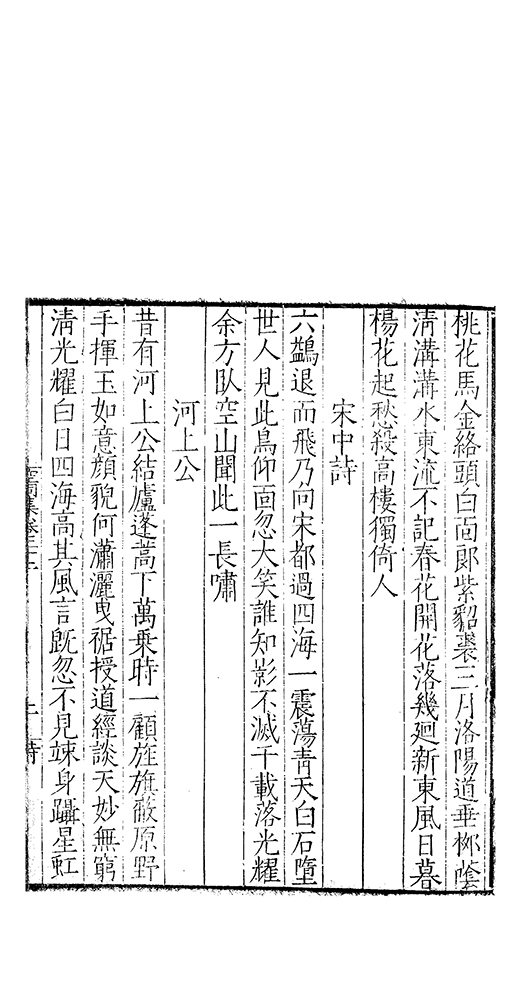 桃花馬金絡頭白面郎紫貂裘三月洛陽道垂柳蔭
淸溝溝水東流不記春花開花落幾廻新東風日暮
楊花起愁殺高樓獨倚人
宋中詩
六鷁退而飛乃向宋都過四海一震蕩靑天白石墮
世人見此鳥仰面忽大笑誰知影不滅千載落光耀
余方臥空山聞此一長嘯
河上公
昔有河上公結廬蓬蒿下萬乗時一顧旌旗蔽原野
手揮玉如意顏貌何瀟灑曳裾授道經談天妙無窮
淸光耀白日四海高其風言旣忽不見竦身躡星虹